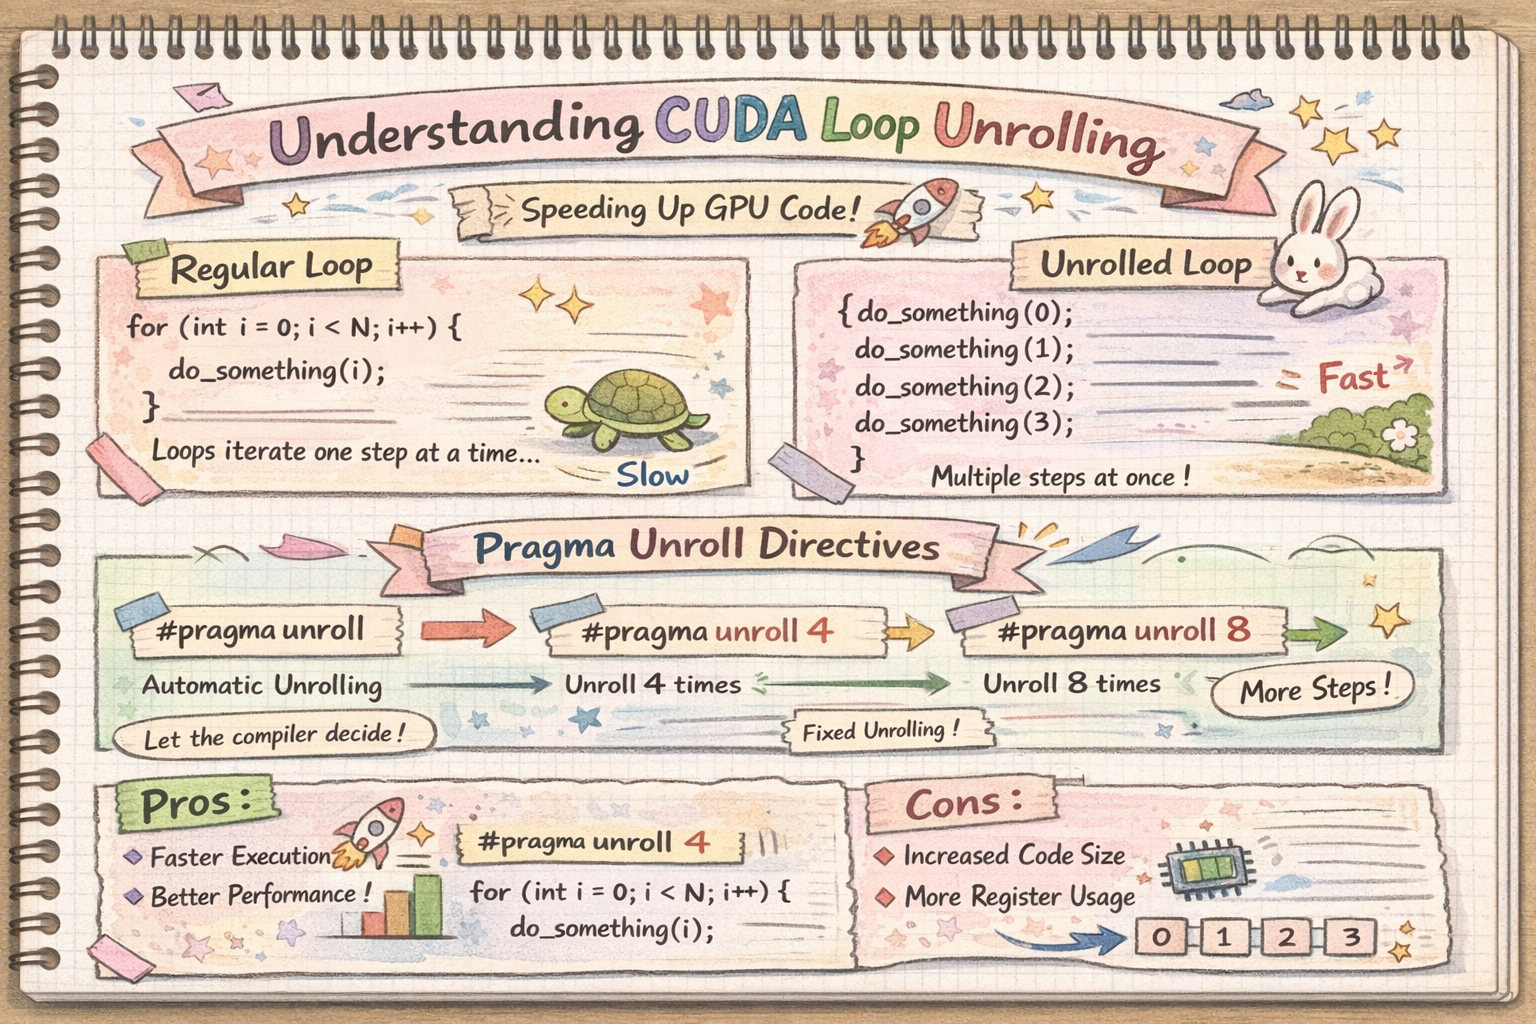 Understanding CUDA Loop Unrolling
Speeding Up GPU Code!
Regular Loop
for (int i = 0; i < N; i++) {
do_something(i);
}
Loops iterate one step at a time...
Slow
Unrolled Loop
{ do_something(0);
do_something(1);
do_something(2);
do_something(3);
}
Fast
Multiple steps at once !
Pragma Unroll Directives
#pragma unroll
#pragma unroll 4
#pragma unroll 8
Automatic Unrolling
Unroll 4 times
Unroll 8 times
More Steps!
Let the compiler decide!
Fixed Unrolling !
Pros:
Faster Execution
Better Performance!
#pragma unroll 4
for (int i = 0; i < N; i++) {
do_something(i);
Cons:
Increased Code Size
More Register Usage
0 1 2 3